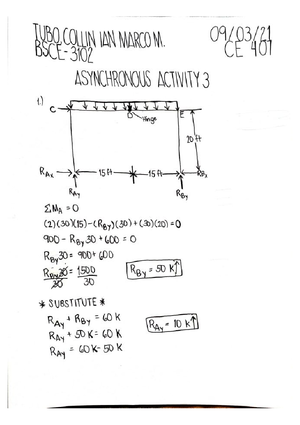 TUBO, COLLIN IAN MARCO M. 09/03/21
BSCE-3102 CE 407
ASYNCHRONOUS ACTIVITY 3
1.)
C D E
Hinge
20 ft
RAx 15 ft 15 ft
RAy RBy
ΣMA = 0
(2)(30)(15) - (RBy)(30) + (30)(20) = 0
900 - RBy 30 + 600 = 0
RBy 30 = 900 + 600
RBy 30 = 1500
30 30
RBy = 50 K ↑
* SUBSTITUTE *
RAy + RBy = 60 K
RAy + 50 K = 60 K
RAy = 60 K - 50 K
RAy = 10 K ↑